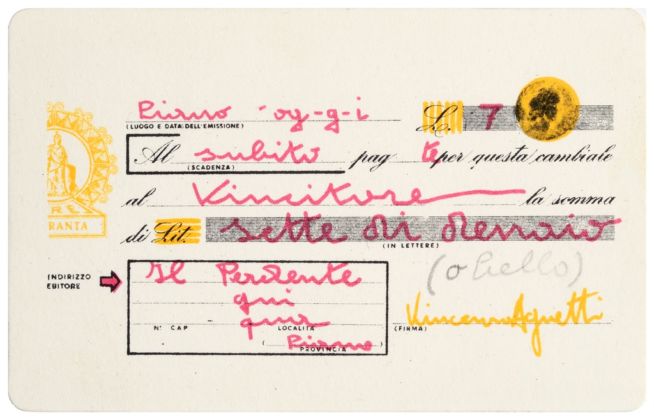 Piano og-g-i
L. 7
(LUOGO E DATA DELL'EMISSIONE)
Al subito pag te per questa cambiale
(SCADENZA)
al Vincitore la somma
di Lit. sette di denaio
(IN LETTERE)
INDIRIZZO
EBITORE
Il Perdente
qui
qua
Piano
(o bello)
N.° CAP LOCALITÀ
(PROVINCIA)
(FIRMA)
Vincenzo Agnetti
RE
RANTA